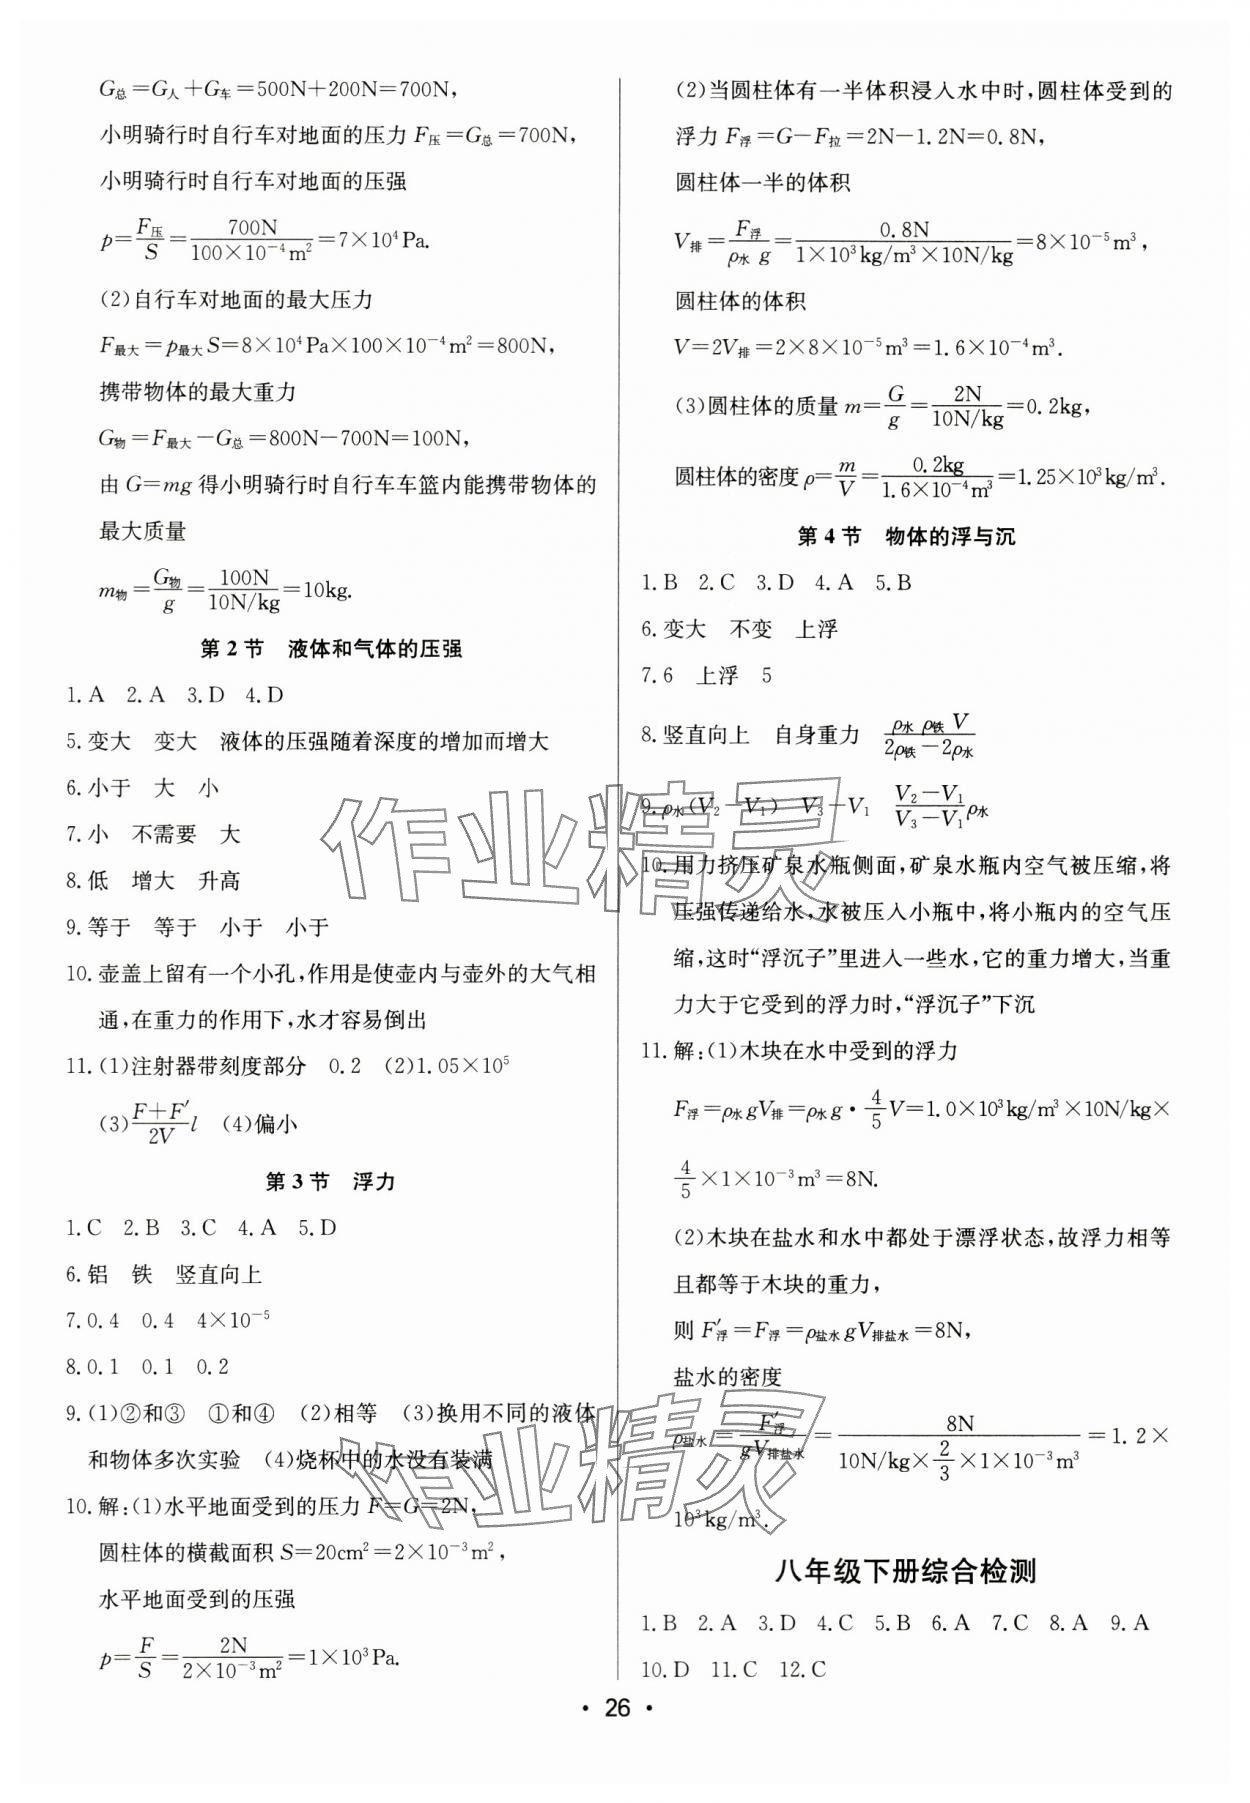 G总=G人+G车=500N+200N=700N,
小明骑行时自行车对地面的压力 F压=G总=700N,
小明骑行时自行车对地面的压强
p=F压/S=700N/(100×10⁻⁴m²)=7×10⁴Pa.
(2)自行车对地面的最大压力
F最大=p最大S=8×10⁴Pa×100×10⁻⁴m²=800N,
携带物体的最大重力
G物=F最大-G总=800N-700N=100N,
由 G=mg 得小明骑行时自行车车篮内能携带物体的
最大质量
m物=G物/g=100N/(10N/kg)=10kg.
第2节 液体和气体的压强
1.A 2.A 3.D 4.D
5.变大 变大 液体的压强随着深度的增加而增大
6.小于 大 小
7.小 不需要 大
8.低 增大 升高
9.等于 等于 小于 小于
10.壶盖上留有一个小孔,作用是使壶内与壶外的大气相
通,在重力的作用下,水才容易倒出
11.(1)注射器带刻度部分 0.2 (2)1.05×10⁵
(3)(F+F′)/(2V) l (4)偏小
第3节 浮力
1.C 2.B 3.C 4.A 5.D
6.铝 铁 竖直向上
7.0.4 0.4 4×10⁻⁵
8.0.1 0.1 0.2
9.(1)②和③ ①和④ (2)相等 (3)换用不同的液体
和物体多次实验 (4)烧杯中的水没有装满
10.解:(1)水平地面受到的压力 F=G=2N,
圆柱体的横截面积 S=20cm²=2×10⁻³m²,
水平地面受到的压强
p=F/S=2N/(2×10⁻³m²)=1×10³Pa.
(2)当圆柱体有一半体积浸入水中时,圆柱体受到的
浮力 F浮=G-F拉=2N-1.2N=0.8N,
圆柱体一半的体积
V排=F浮/(ρ水 g)=0.8N/(1×10³kg/m³×10N/kg)=8×10⁻⁵m³,
圆柱体的体积
V=2V排=2×8×10⁻⁵m³=1.6×10⁻⁴m³.
(3)圆柱体的质量 m=G/g=2N/(10N/kg)=0.2kg,
圆柱体的密度 ρ=m/V=0.2kg/(1.6×10⁻⁴m³)=1.25×10³kg/m³.
第4节 物体的浮与沉
1.B 2.C 3.D 4.A 5.B
6.变大 不变 上浮
7.6 上浮 5
8.竖直向上 自身重力 (ρ水 ρ铁 V)/(2ρ铁-2ρ水)
9.ρ水(V₂-V₁) V₃-V₁ (V₂-V₁)/(V₃-V₁) ρ水
10.用力挤压矿泉水瓶侧面,矿泉水瓶内空气被压缩,将
压强传递给水,水被压入小瓶中,将小瓶内的空气压
缩,这时“浮沉子”里进入一些水,它的重力增大,当重
力大于它受到的浮力时,“浮沉子”下沉
11.解:(1)木块在水中受到的浮力
F浮=ρ水gV排=ρ水g·4/5V=1.0×10³kg/m³×10N/kg×
4/5×1×10⁻³m³=8N.
(2)木块在盐水和水中都处于漂浮状态,故浮力相等
且都等于木块的重力,
则 F′浮=F浮=ρ盐水gV排盐水=8N,
盐水的密度
ρ盐水=F′浮/(gV排盐水)=8N/(10N/kg×2/3×1×10⁻³m³)=1.2×
10³kg/m³.
八年级下册综合检测
1.B 2.A 3.D 4.C 5.B 6.A 7.C 8.A 9.A
10.D 11.C 12.C
· 26 ·
作业精灵
作业精灵